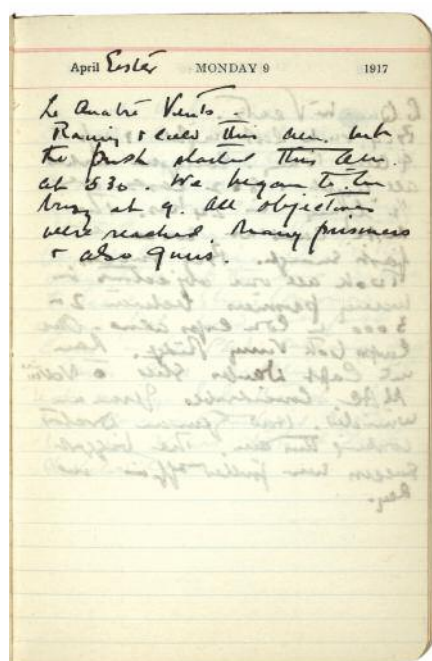 April Easter MONDAY 9 1917
Le Quatre Vents.
Raining & cold this am. but
the push started this am.
at 530. We began to be
busy at 9. All objectives
were reached. Many prisoners
& also guns.